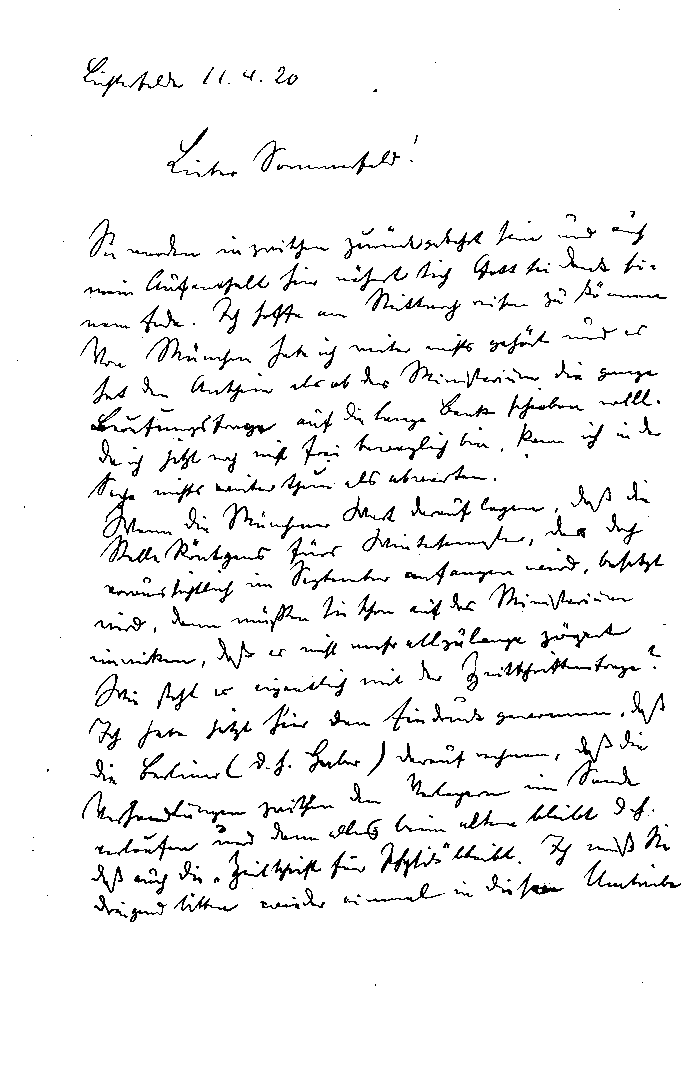 Lichterfelde 11.4.20
Lieber Sommerfeld!
Sie werden inzwischen zurückgekehrt sein und auch
mein Aufenthalt hier nähert sich Gott sei Dank sei-
nem Ende. Ich hoffe am Mittwoch reisen zu können
Von München habe ich weiter nichts gehört und es
hat den Anschein als ob das Ministerium die ganze
Berufungsfrage auf die lange Bank schieben will.
Da ich jetzt noch nicht frei beweglich bin, kann ich in der
Sache nichts weiter thun als abwarten.
Wenn die Münchner Wert darauf legen, daß die
Stelle Röntgens fürs Wintersemester, das doch
voraussichtlich im September anfangen wird, besetzt
wird, dann müssen Sie schon auf das Ministerium
einwirken, daß es nicht mehr allzulange zögert
Wie steht es eigentlich mit der Zeitschriftenfrage?
Ich habe jetzt hier den Eindruck gewonnen, daß
die Berliner (d.h. Haber) darauf rechnen, daß die
Verhandlungen zwischen den Verlegern im Sande
verlaufen und dann alles beim alten bleibt d.h.
daß auch die "Zeitschrift für Physik" bleibt. Ich muß Sie
dringend bitten wieder einmal in diesem Umtriebe